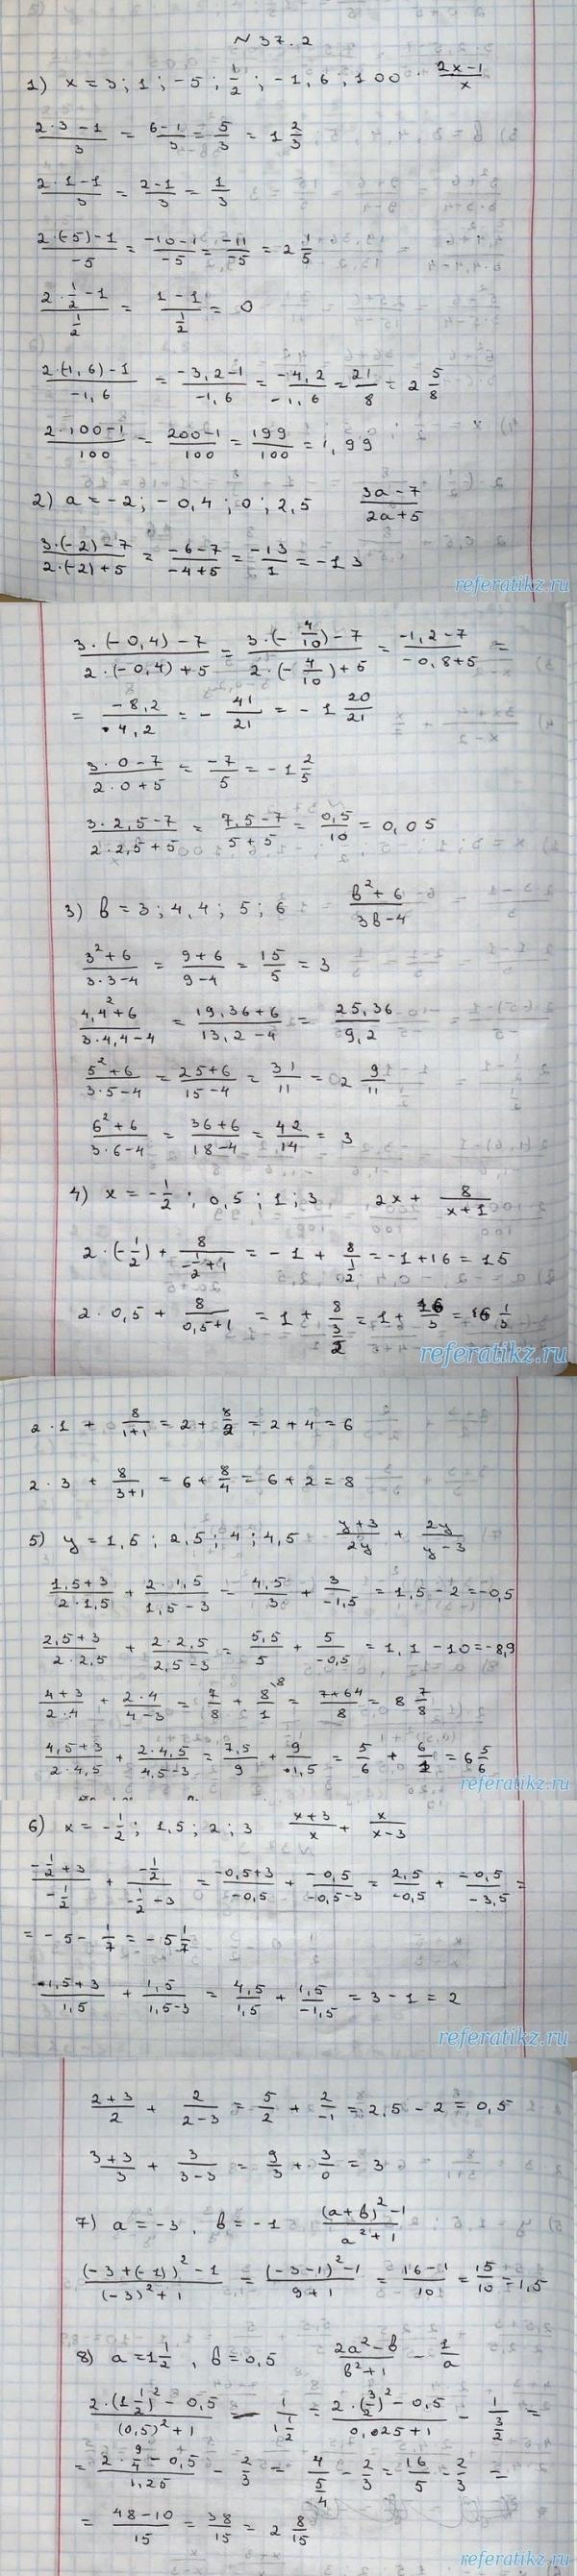 № 37.2
1) x = 3; 1; -5; 1/2; -1,6, 100 · (2x-1)/x
(2·3-1)/3 = (6-1)/3 = 5/3 = 1 2/3
(2·1-1)/3 = (2-1)/3 = 1/3
(2·(-5)-1)/-5 = (-10-1)/-5 = -11/-5 = 2 1/5
(2·1/2-1)/(1/2) = (1-1)/(1/2) = 0
(2·(-1,6)-1)/-1,6 = (-3,2-1)/-1,6 = -4,2/-1,6 = 21/8 = 2 5/8
(2·100-1)/100 = (200-1)/100 = 199/100 = 1,99
2) a = -2; -0,4; 0; 2,5 (3a-7)/(2a+5)
(3·(-2)-7)/(2·(-2)+5) = (-6-7)/(-4+5) = -13/1 = -13
referatikz.ru
(3·(-0,4)-7)/(2·(-0,4)+5) = (3·(-4/10)-7)/(2·(-4/10)+5) = (-1,2-7)/(-0,8+5) =
= -8,2/4,2 = - 41/21 = - 1 20/21
(3·0-7)/(2·0+5) = -7/5 = -1 2/5
(3·2,5-7)/(2·2,5+5) = (7,5-7)/(5+5) = 0,5/10 = 0,05
3) b = 3; 4,4; 5; 6 (b²+6)/(3b-4)
(3²+6)/(3·3-4) = (9+6)/(9-4) = 15/5 = 3
(4,4²+6)/(3·4,4-4) = (19,36+6)/(13,2-4) = 25,36/9,2
(5²+6)/(3·5-4) = (25+6)/(15-4) = 31/11 = 2 9/11
(6²+6)/(3·6-4) = (36+6)/(18-4) = 42/14 = 3
4) x = -1/2; 0,5; 1; 3 2x + 8/(x+1)
2·(-1/2) + 8/(-1/2+1) = -1 + 8/(1/2) = -1+16 = 15
2·0,5 + 8/(0,5+1) = 1 + 8/(3/2) = 1 + 16/3 = 6 1/3
referatikz.ru
2·1 + 8/(1+1) = 2 + 8/2 = 2+4 = 6
2·3 + 8/(3+1) = 6 + 8/4 = 6+2 = 8
5) y = 1,5; 2,5; 4; 4,5 (y+3)/2y + 2y/(y-3)
(1,5+3)/(2·1,5) + (2·1,5)/(1,5-3) = 4,5/3 + 3/-1,5 = 1,5-2 = -0,5
(2,5+3)/(2·2,5) + (2·2,5)/(2,5-3) = 5,5/5 + 5/-0,5 = 1,1-10 = -8,9
(4+3)/(2·4) + (2·4)/(4-3) = 7/8 + 8/1 \8 = (7+64)/8 = 8 7/8
(4,5+3)/(2·4,5) + (2·4,5)/(4,5-3) = 7,5/9 + 9/1,5 = 5/6 + 6/1 = 6 5/6
referatikz.ru
6) x = -1/2; 1,5; 2; 3 (x+3)/x + x/(x-3)
(-1/2+3)/(-1/2) + (-1/2)/(-1/2-3) = (-0,5+3)/-0,5 + -0,5/(-0,5-3) = 2,5/-0,5 + -0,5/-3,5 =
= -5 - 1/7 = -5 1/7
(1,5+3)/1,5 + 1,5/(1,5-3) = 4,5/1,5 + 1,5/-1,5 = 3-1 = 2
referatikz.ru
(2+3)/2 + 2/(2-3) = 5/2 + 2/-1 = 2,5-2 = 0,5
(3+3)/3 + 3/(3-3) = 9/3 + 3/0 = 3
7) a = -3, b = -1 ((a+b)²-1)/(a²+1)
((-3+(-1))²-1)/((-3)²+1) = ((-3-1)²-1)/(9+1) = (16-1)/10 = 15/10 = 1,5
8) a = 1 1/2, b = 0,5 (2a²-b)/(b²+1) - 1/a
(2·(1 1/2)²-0,5)/((0,5)²+1) - 1/(1 1/2) = (2·(3/2)²-0,5)/(0,025+1) - 1/(3/2) =
= (2·9/4-0,5)/1,25 - 2/3 = 4/(5/4) - 2/3 = 16/5 - 2/3 =
= (48-10)/15 = 38/15 = 2 8/15
referatikz.ru